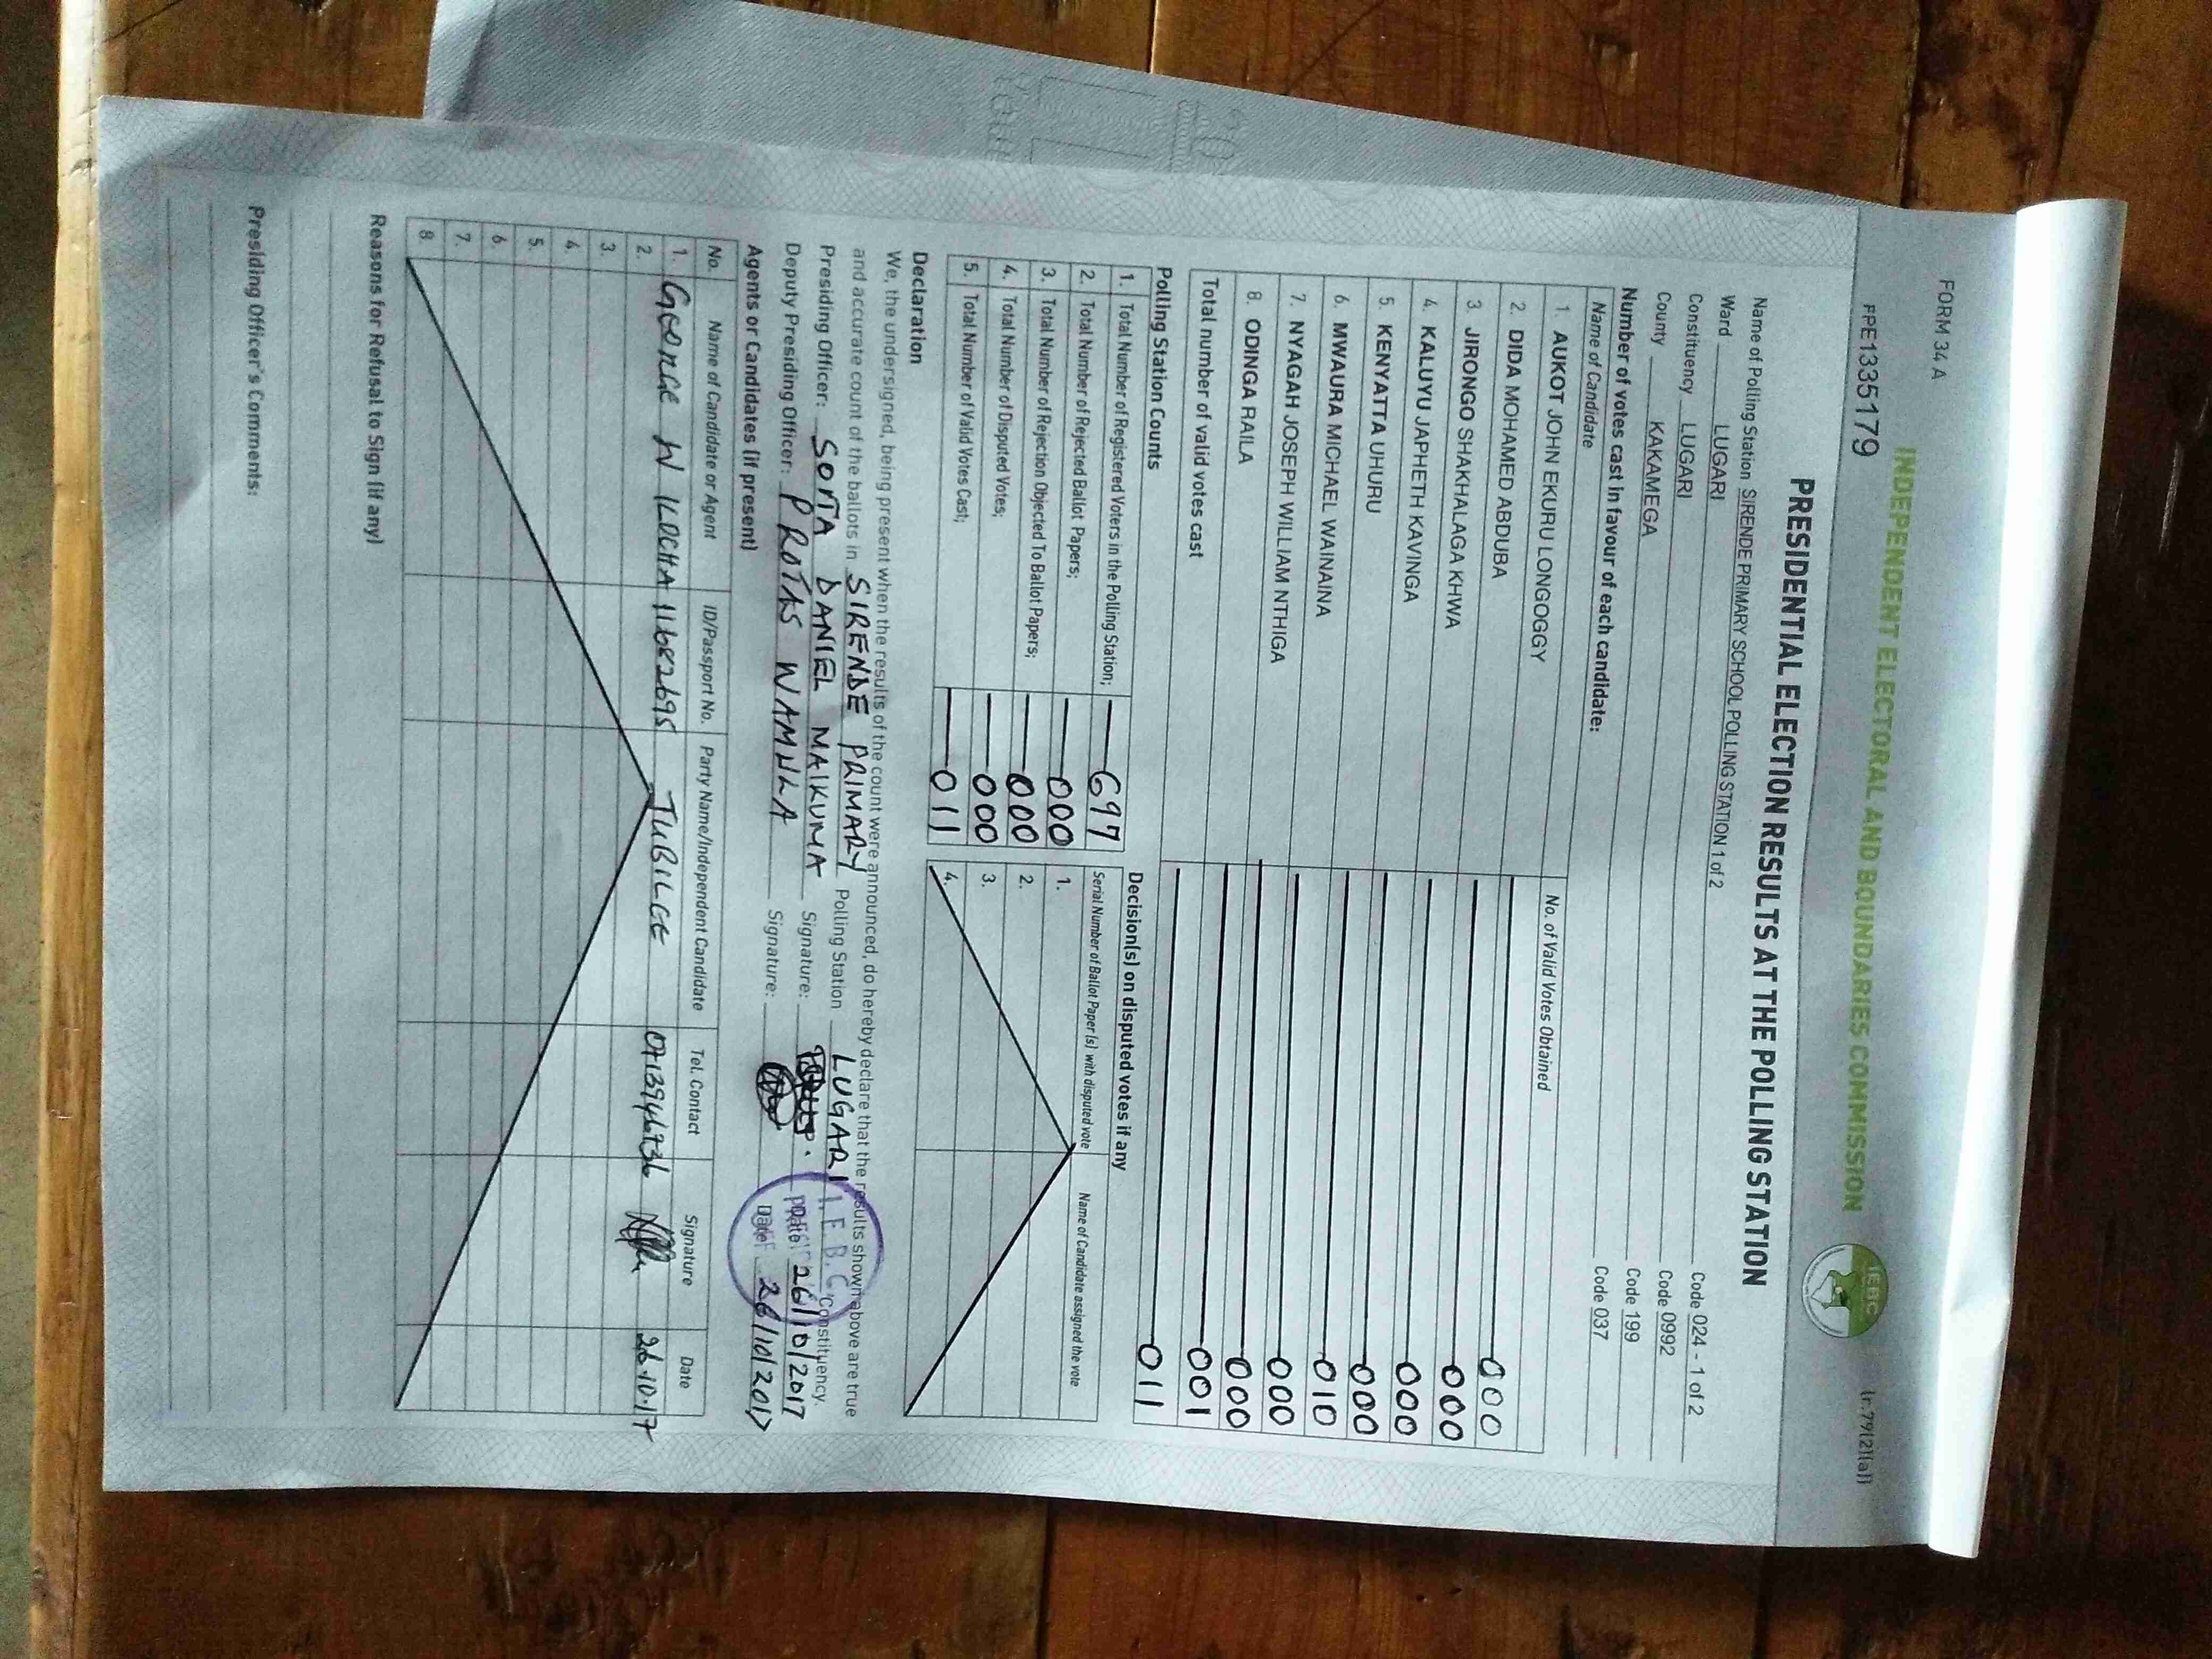 FORM 34 A
(r.79(2)(a))
INDEPENDENT ELECTORAL AND BOUNDARIES COMMISSION
IEBC
PPE1335179
PRESIDENTIAL ELECTION RESULTS AT THE POLLING STATION
Name of Polling Station SIRENDE PRIMARY SCHOOL POLLING STATION 1 of 2 Code 024 - 1 of 2
Ward LUGARI Code 0992
Constituency LUGARI Code 199
County KAKAMEGA Code 037
Number of votes cast in favour of each candidate:
Name of Candidate No. of Valid Votes Obtained
1. AUKOT JOHN EKURU LONGOGGY 000
2. DIDA MOHAMED ABDUBA 000
3. JIRONGO SHAKHALAGA KHWA 000
4. KALUYU JAPHETH KAVINGA 000
5. KENYATTA UHURU 010
6. MWAURA MICHAEL WAINAINA 000
7. NYAGAH JOSEPH WILLIAM NTHIGA 000
8. ODINGA RAILA 001
Total number of valid votes cast 011
Polling Station Counts
1. Total Number of Registered Voters in the Polling Station; 697
2. Total Number of Rejected Ballot Papers; 000
3. Total Number of Rejection Objected To Ballot Papers; 000
4. Total Number of Disputed Votes; 000
5. Total Number of Valid Votes Cast; 011
Decision(s) on disputed votes if any
Serial Number of Ballot Paper (s) with disputed vote Name of Candidate assigned the vote
1.
2.
3.
4.
Declaration
We, the undersigned, being present when the results of the count were announced, do hereby declare that the results shown above are true
and accurate count of the ballots in SIRENDE PRIMARY Polling Station LUGARI Constituency.
Presiding Officer: SOITA DANIEL MAIKUMA Signature: Date 26/10/2017
Deputy Presiding Officer: PROTAS WAMWLA Signature: Date 26/10/2017
I.E.B.C
Agents or Candidates (if present)
No. Name of Candidate or Agent ID/Passport No. Party Name/Independent Candidate Tel. Contact Signature Date
1. GEORGE W 11682695 JUBILEE 0713946736 26.10.17
2.
3.
4.
5.
6.
7.
8.
Reasons for Refusal to Sign (if any)
Presiding Officer's Comments: